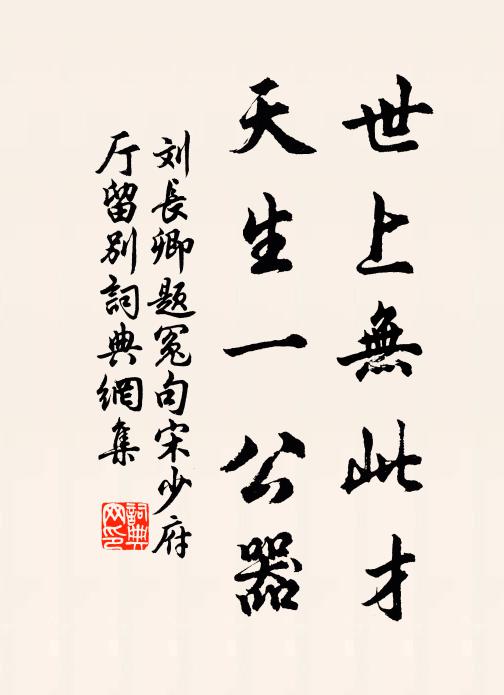 世上無此才
天生一公器
刘長卿題冤句宋少府
厅留别詞典網集
詞典
网印